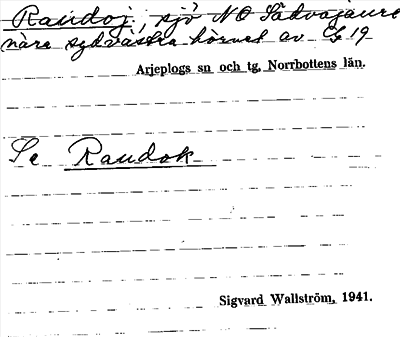 Raudoj, sjö NO Sädvajaure
nära sydvästra hörnet av G 19
Arjeplogs sn och tg, Norrbottens län.
Se Raudok
Sigvard Wallström, 1941.